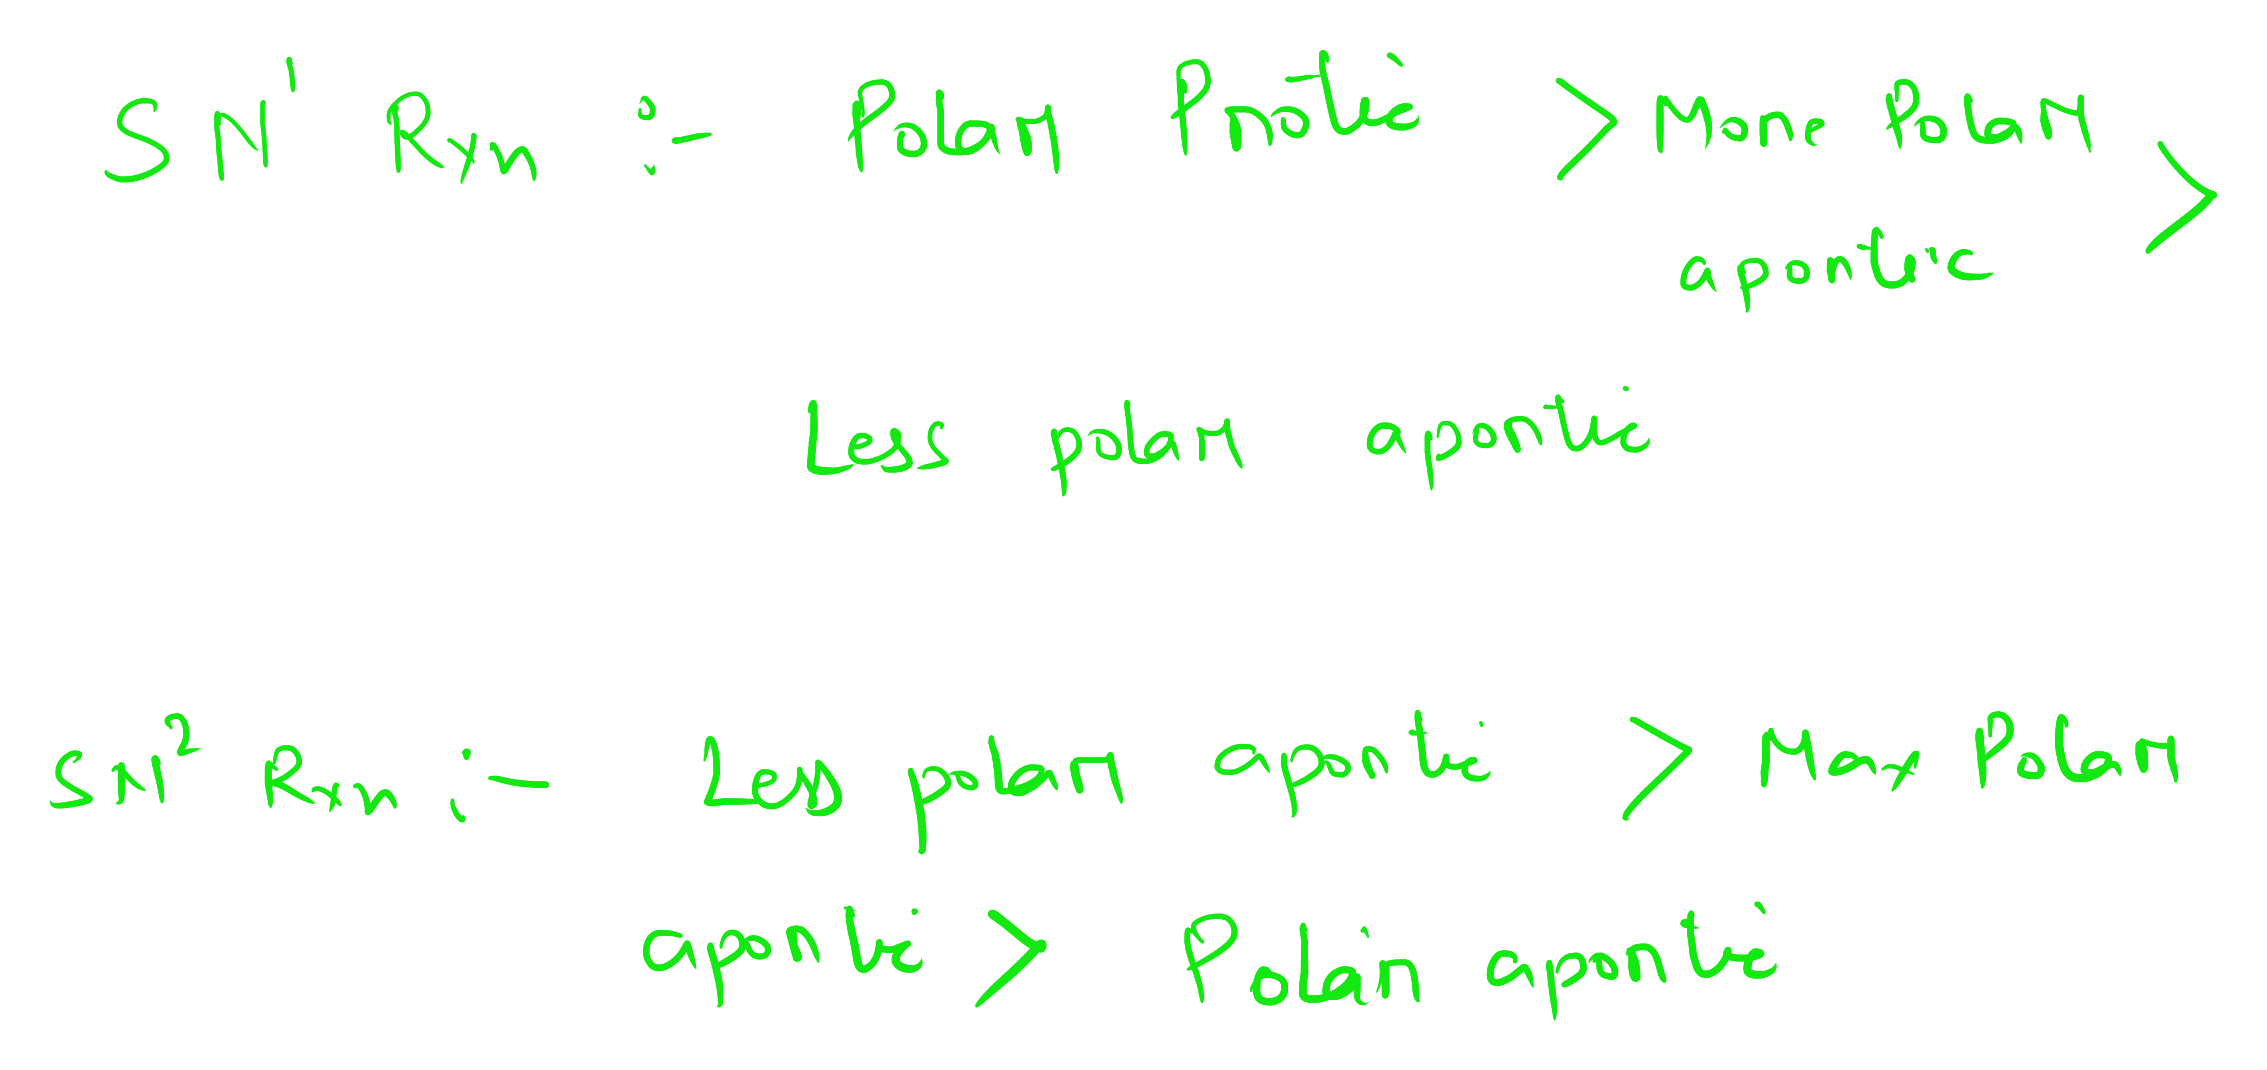 SN¹ Rxn :- Polar Protic > More Polar
aportic >
Less polar aportic
SN² Rxn :- Less polar aportic > Max Polar
aportic > Polar aportic